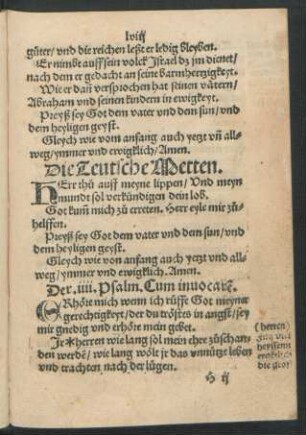 lviij
güter/ vnd die reichen leßt er ledig bleyben.
Er nimbt auff sein volck Israel dz jm dienet/
nach dem er gedacht an seine barmhertzigkeyt.
Wie er dañ versprochen hat seinen vätern/
Abraham vnd seinen kindern in ewigkeyt.
Preyß sey Got dem vater vnd dem sun/ vnd
dem heyligen geyst.
Gleych wie vom anfang auch yetzt vñ all-
weg/ ymmer vnd ewigklich/ Amen.
Die Teutsche Metten.
HErr thů auff meyne lippen/ Vnd meyn
mundt sol verkündigen dein lob.
Got kum̃ mich zů erreten. Herr eyle mir zů-
helffen.
Preyß sey Got dem vater vnd dem sun/ vnd
dem heyligen geyst.
Gleych wie von anfang auch yetzt vnd all-
weg/ ymmer vnd ewigklich. Amen.
Der .iiij. Psalm. Cum inuocarē.
ERhöre mich wenn ich růffe Got meyner
gerechtigkeyt/ der du tröstes in angst/ sey
mir gnedig vnd erhöre mein gebet.
Jr*herren wie lang sol mein ehre zůschan-
den werdē/ wie lang wölt jr das vnnütze lieben
vnd trachten nach der lügen.
( herren)
heyssenn
die gros/
H ij